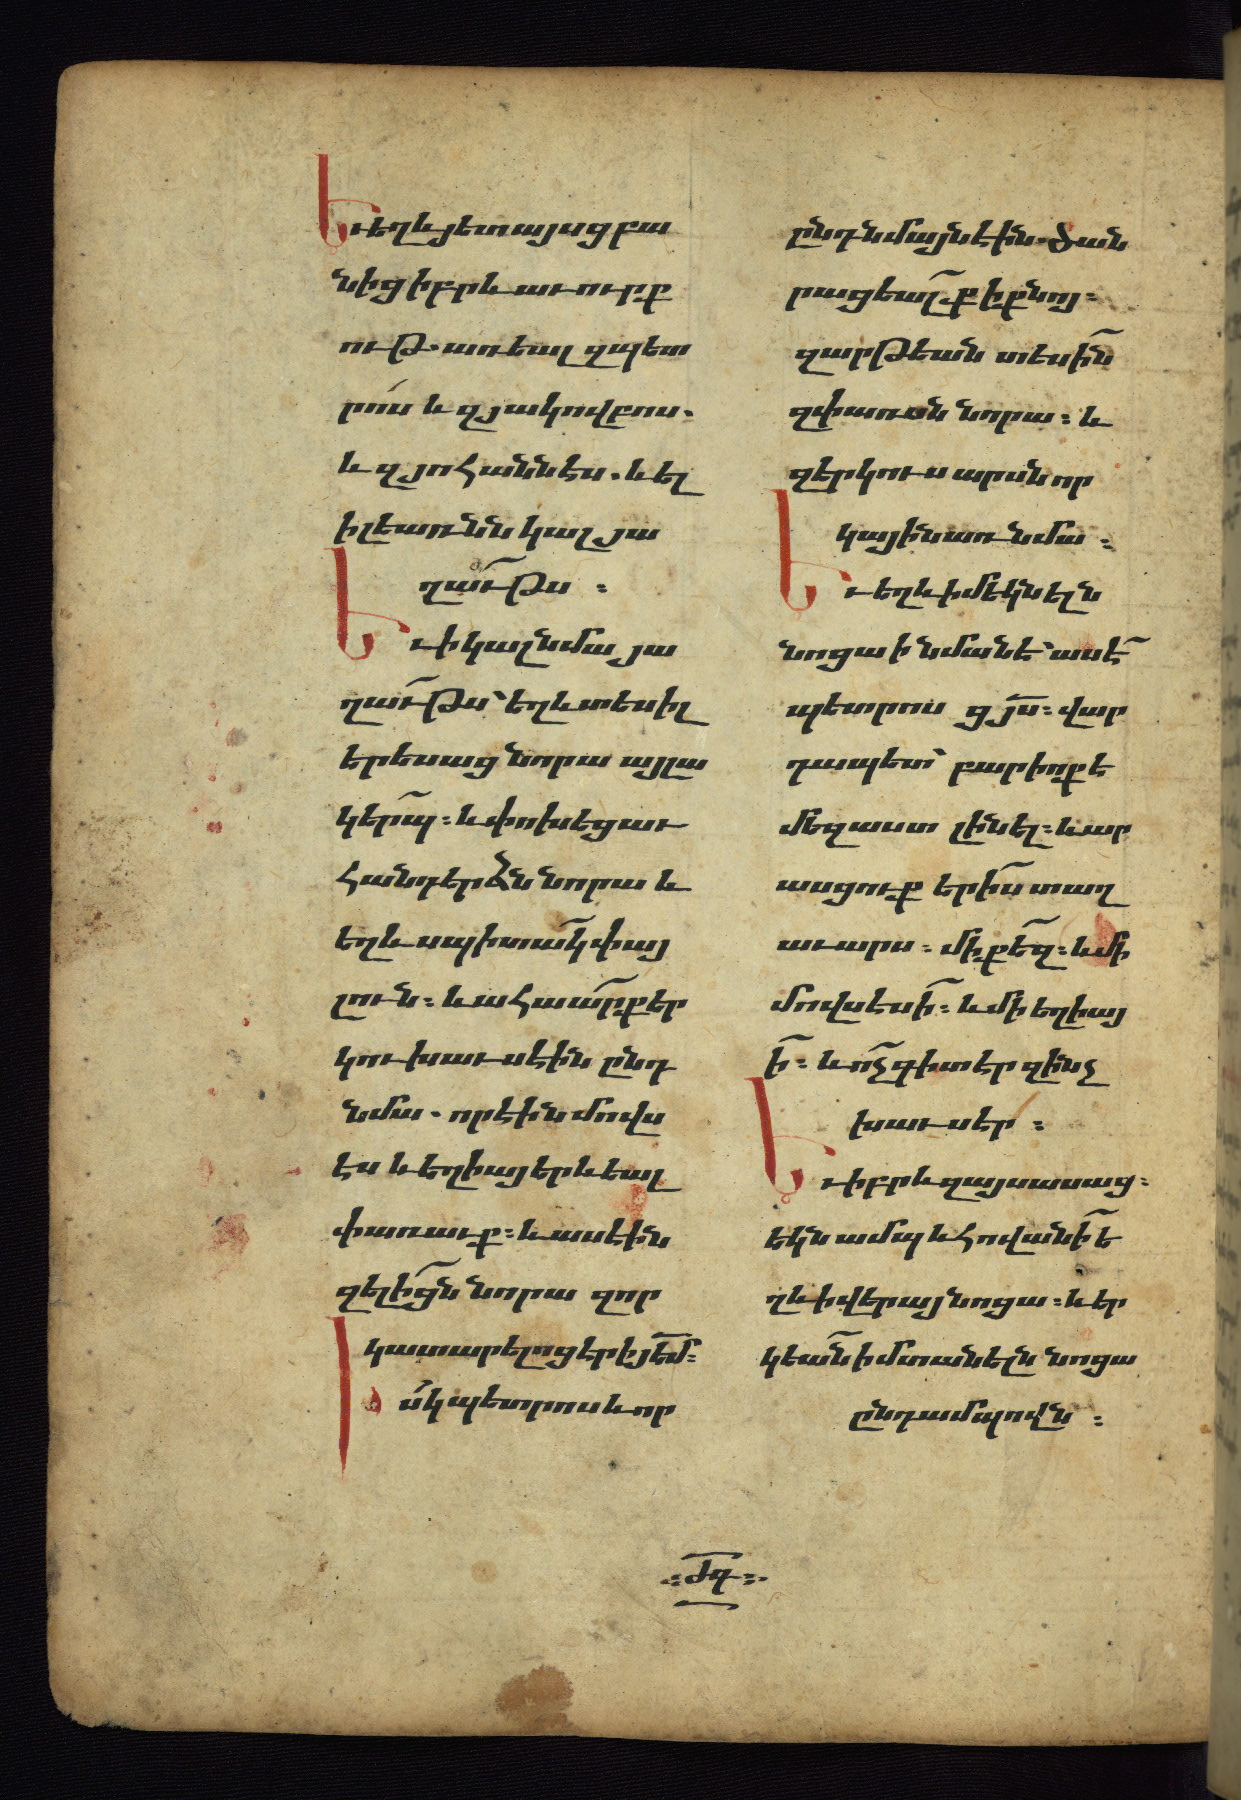 Եւ եղև յետ այսց բա
նից իբրև աւուրք
ութ. առեալ զպետ
րոս և զյակովբոս.
և զյոհաննէս. և ել
ի լեառնն կալ յա
ղաւթս :
Եւ ի կալ նմա յա
ղաւթս՝ եղև տեսիլ
երեսաց նորա այլա
կերպ : և փոխեցաւ
հանդերձն նորա և
եղև սպիտակ փայ
լուն : և ահա արք եր
կու խաւսէին ընդ
նմա. որ էին մովս
էս և եղիայ երևեալ
փառաւք : և ասէին
զելիցն նորա զոր
կատարելոց էր ի յէմ :
Իսկ պետրոս և որ
ընդ նմայն էին. ծան
րացեալ ք ի քնոյ :
զարթեան տեսին
զփառսն նորա : և
զերկուս արսն որ
կային առ նմա :
Եւ եղև ի մեկնելն
նոցա ի նմանէ՝ ասէ
պետրոս ց յս : վար
դապետ՝ բարիոք է
մեզ աստ լինել : և ար
ասցուք երիս տաղ
աւարս : մի քեզ : և մի
մովսէսի : և մի եղիայ
ի : և ոչ գիտէր զինչ
խաւսէր :
Եւ իբրև զայս ասաց :
եկն ամպ և հովանի ե
ղև ի վերայ նոցա : և եր
կեան ի մտանելն նոցա
ընդ ամպովն :
ժզ